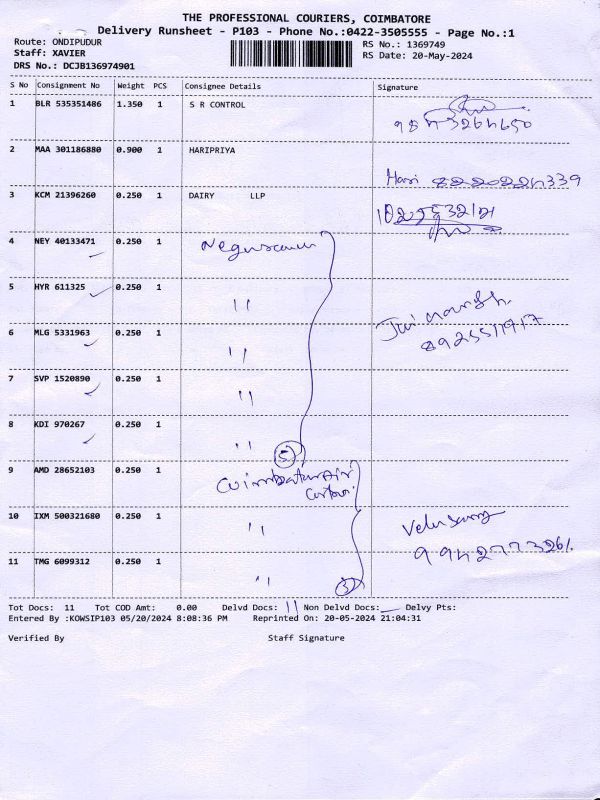 THE PROFESSIONAL COURIERS, COIMBATORE
Delivery Runsheet - P103 - Phone No.:0422-3505555 - Page No.:1
Route: ONDIPUDUR
RS No.: 1369749
Staff: XAVIER
RS Date: 20-May-2024
DRS No.: DCJB136974901
S No Consignment No Weight PCS Consignee Details Signature
1 BLR 535351486 1.350 1 S R CONTROL
2 MAA 301186880 0.900 1 HARIPRIYA
Hari
3 KCM 21396260 0.250 1 DAIRY LLP
4 NEY 40133471 0.250 1
5 HYR 611325 0.250 1 "
6 MLG 5331963 0.250 1 "
7 SVP 1520890 0.250 1 "
8 KDI 970267 0.250 1 " 5
9 AMD 28652103 0.250 1 Coimbatore Air
10 IXM 500321680 0.250 1 "
11 TMG 6099312 0.250 1 " 3
Tot Docs: 11 Tot COD Amt: 0.00 Delvd Docs: 11 Non Delvd Docs: Delvy Pts:
Entered By :KOWSIP103 05/20/2024 8:08:36 PM Reprinted On: 20-05-2024 21:04:31
Verified By Staff Signature